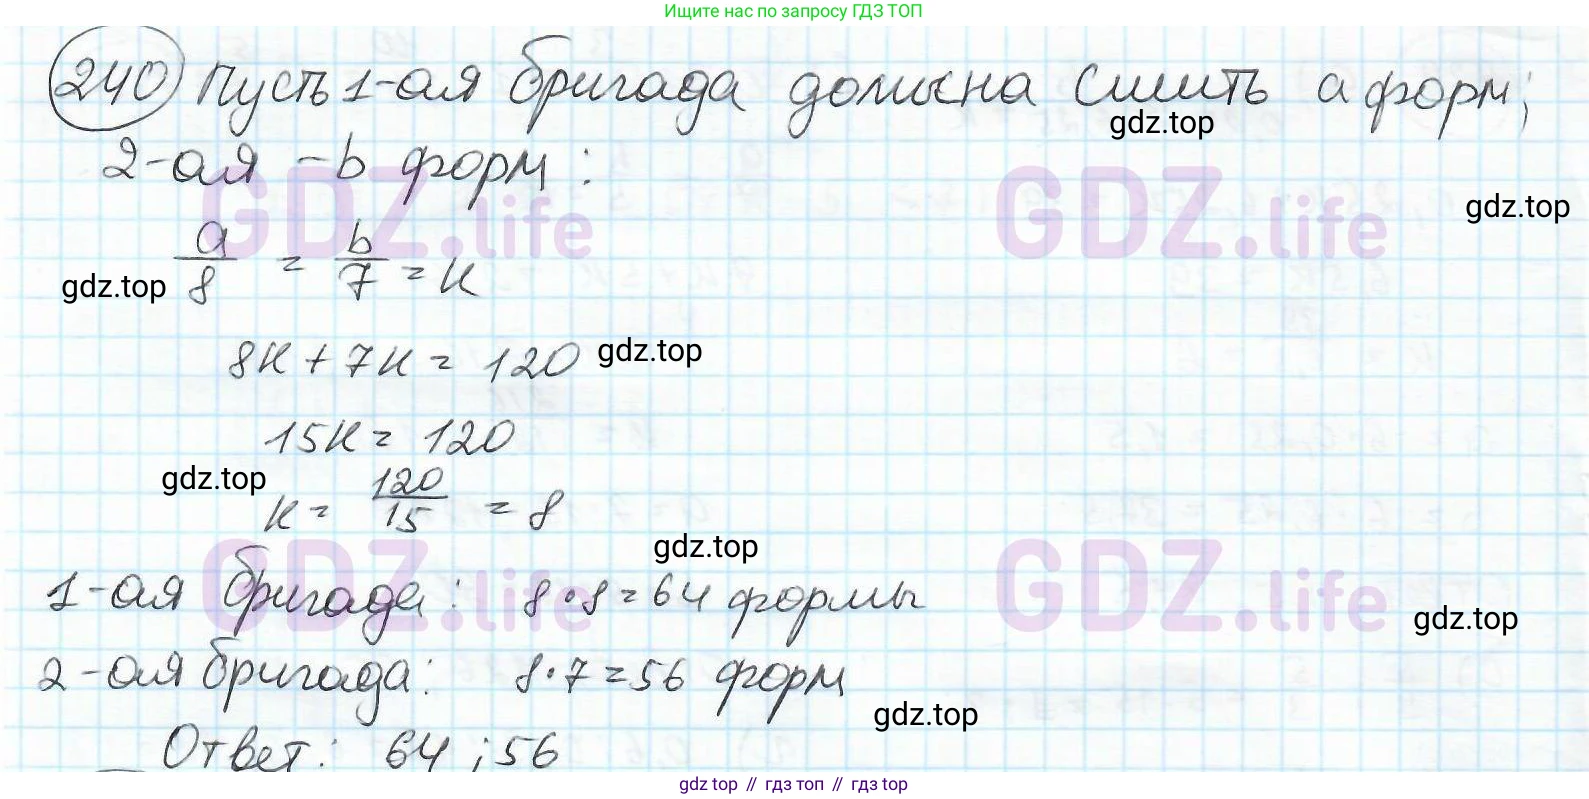 Ищите нас по запросу ГДЗ ТОП
240 Пусть 1-ая бригада должна сшить a форм;
gdz.top
2-ая – b форм:
GDZ.life GDZ.life
gdz.top
a/8 = b/7 = к
gdz.top
8к + 7к = 120
gdz.top
15к = 120
gdz.top
к = 120/15 = 8
gdz.top
GDZ.life GDZ.life
1-ая бригада: 8·8=64 формы
gdz.top
2-ая бригада: 8·7=56 форм
gdz.top
Ответ: 64; 56
gdz top // гдз топ // gdz top